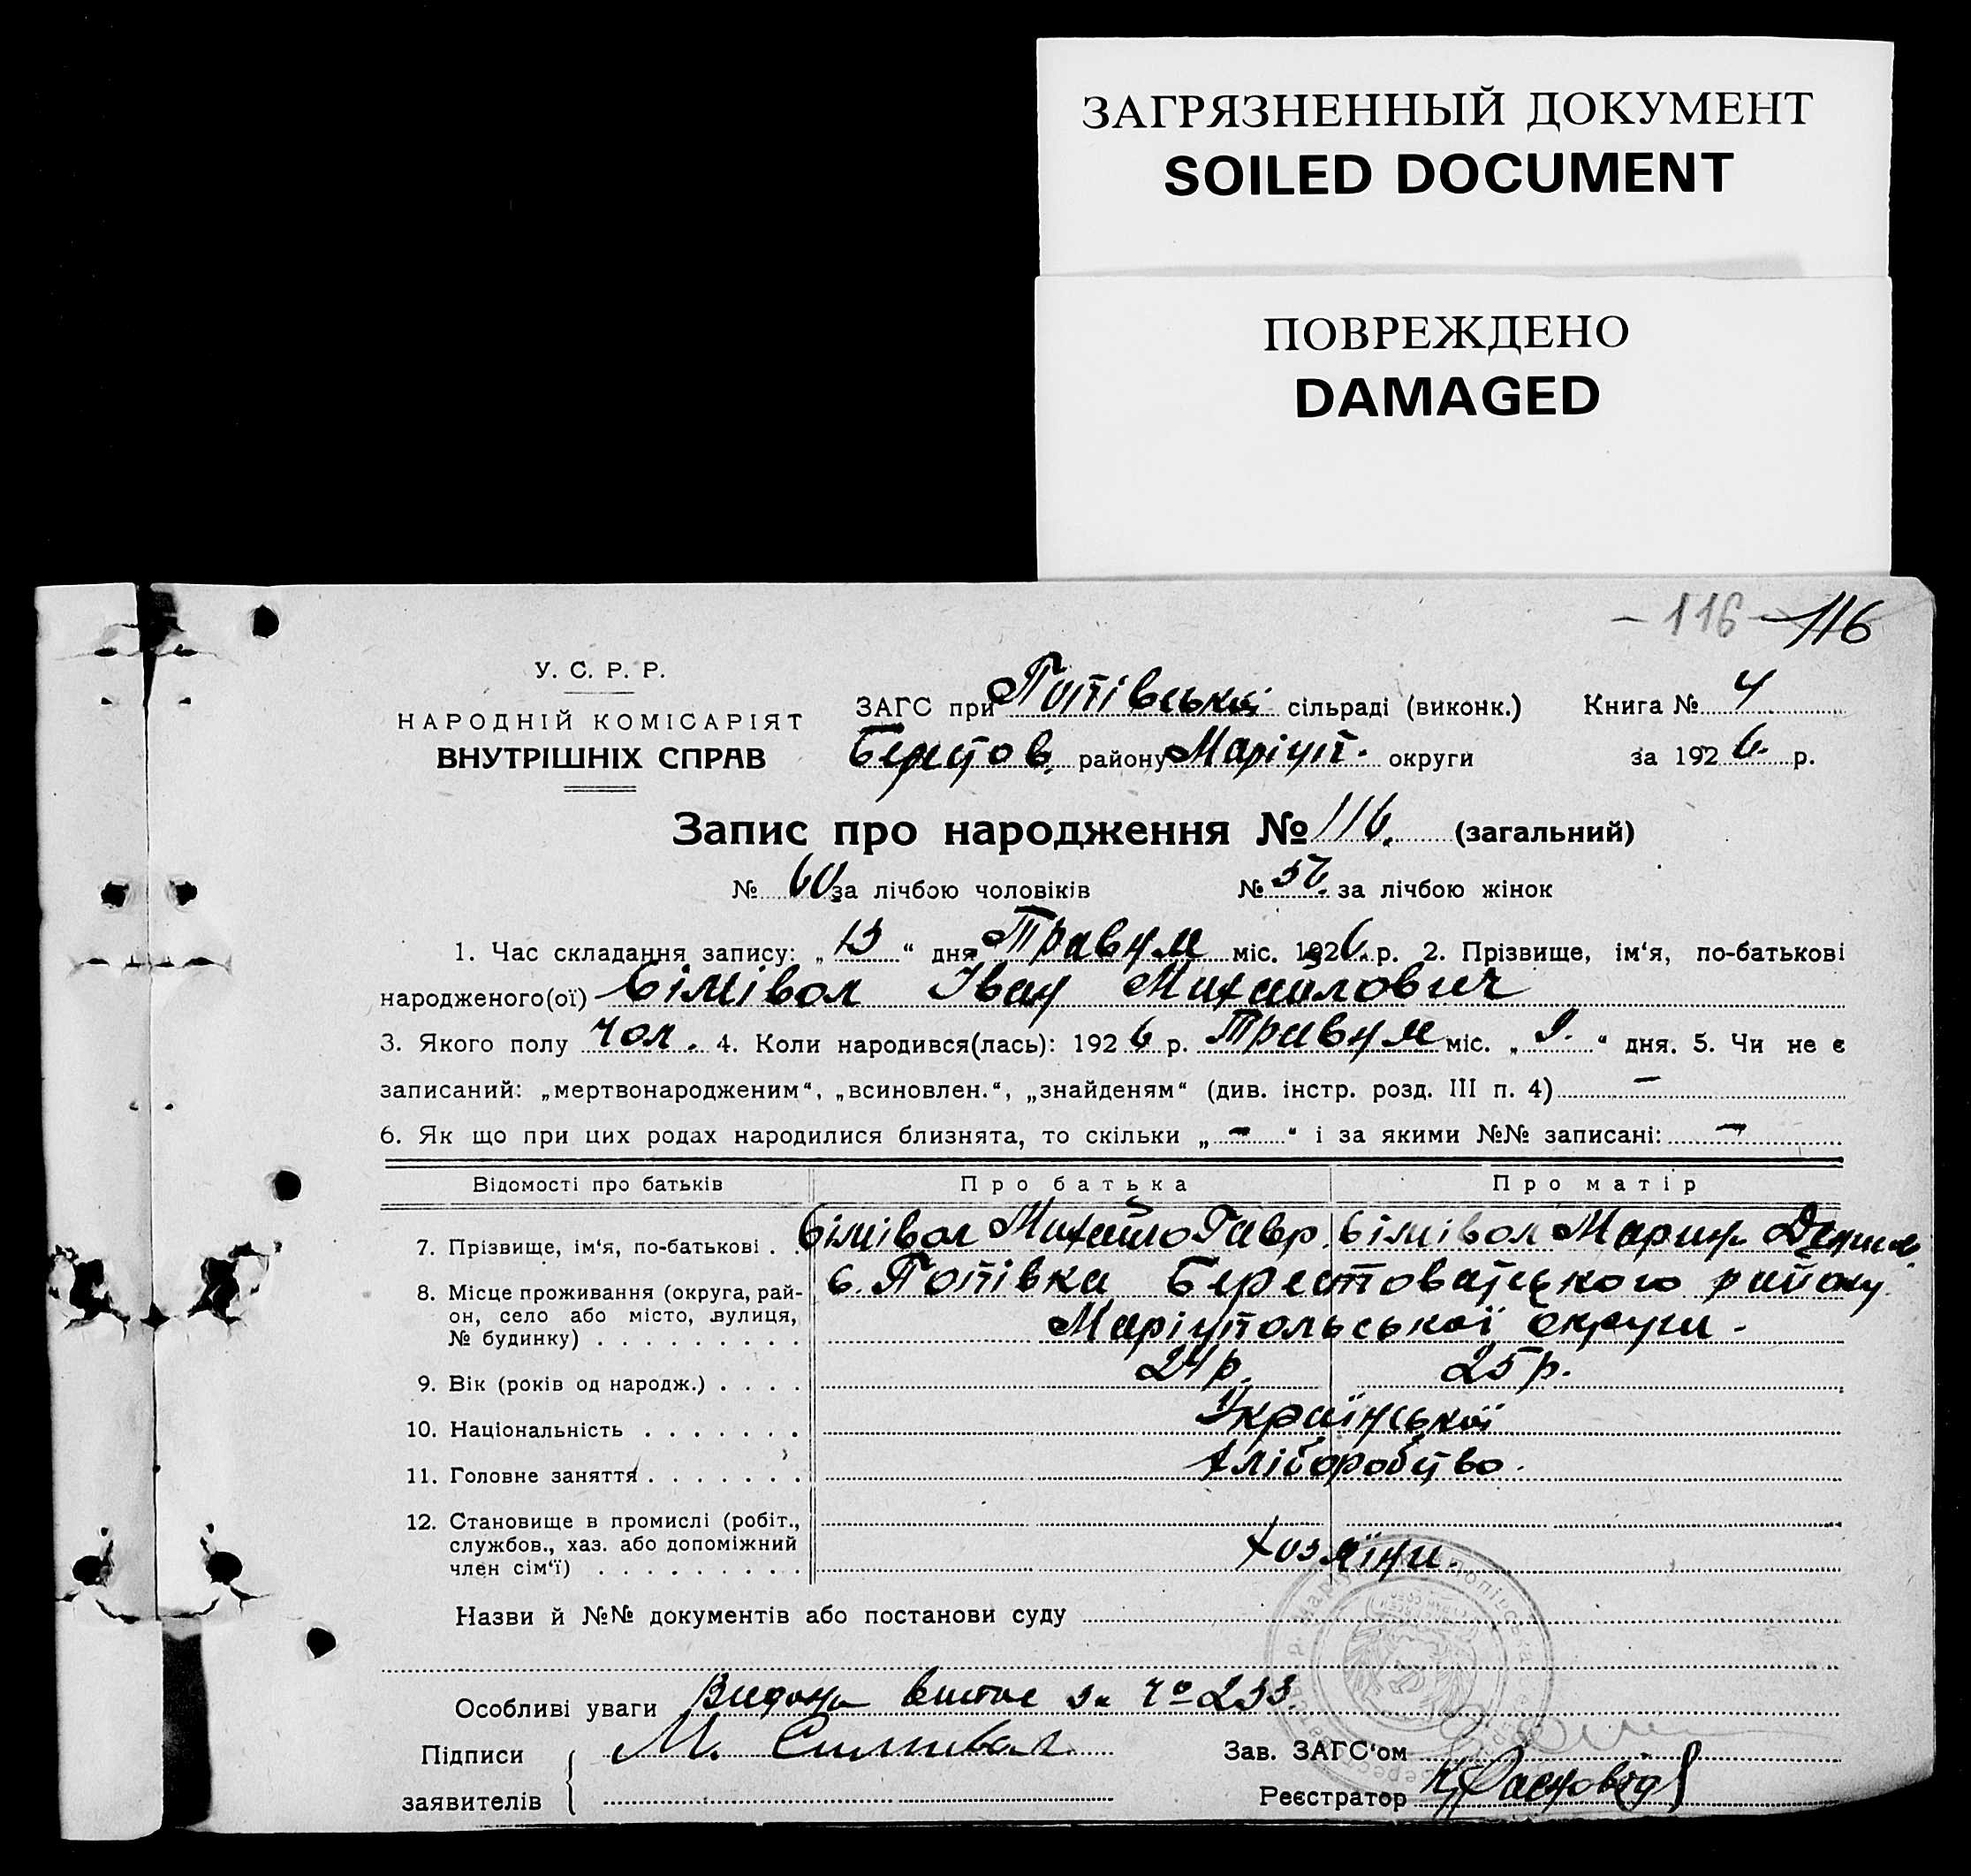 ЗАГРЯЗНЕННЫЙ ДОКУМЕНТ
SOILED DOCUMENT
ПОВРЕЖДЕНО
DAMAGED
– 116 – 116
У. С. Р. Р.
НАРОДНІЙ КОМІСАРІЯТ
ВНУТРІШНІХ СПРАВ
ЗАГС при Попівській сільраді (виконк.) Книга № 4
Берестов. району Маріуп. округи за 1926 р.
Запис про народження № 116. (загальний)
№ 60 за лічбою чоловіків № 56. за лічбою жінок
1. Час складання запису: „ 13 “ дня Травня міс. 1926 р. 2. Прізвище, ім‘я, по-батькові
народженого(ої) Сімівол Іван Михайлович
3. Якого полу чол. 4. Коли народився(лась): 1926 р. Травня міс. „ 9. “ дня. 5. Чи не є
записаний: „мертвонародженим“, „всиновлен.“, „знайденям“ (див. інстр. розд. III п. 4) –
6. Як що при цих родах народилися близнята, то скільки „ – “ і за якими №№ записані: –
Відомості про батьків Про батька Про матір
7. Прізвище, ім‘я, по-батькові . . Сімівол Михайло Гавр. Сімівол Мария
8. Місце проживання (округа, рай- с. Попівка Берестоватського району
он, село або місто, вулиця, Маріупольської округи.
№ будинку) . . . . . . . . .
9. Вік (років од народж.) . . . . 24 р. 25 р.
10. Національність . . . . . . . Української
11. Головне заняття . . . . . . . хліборобство.
12. Становище в промислі (робіт.,
службов., хаз. або допоміжний хозяїни.
член сім‘ї) . . . . . . . . .
Назви й №№ документів або постанови суду
Особливі уваги Видана виписе за № 233.
Підписи М. Симивол Зав. ЗАГС‘ом
заявителів Реєстратор